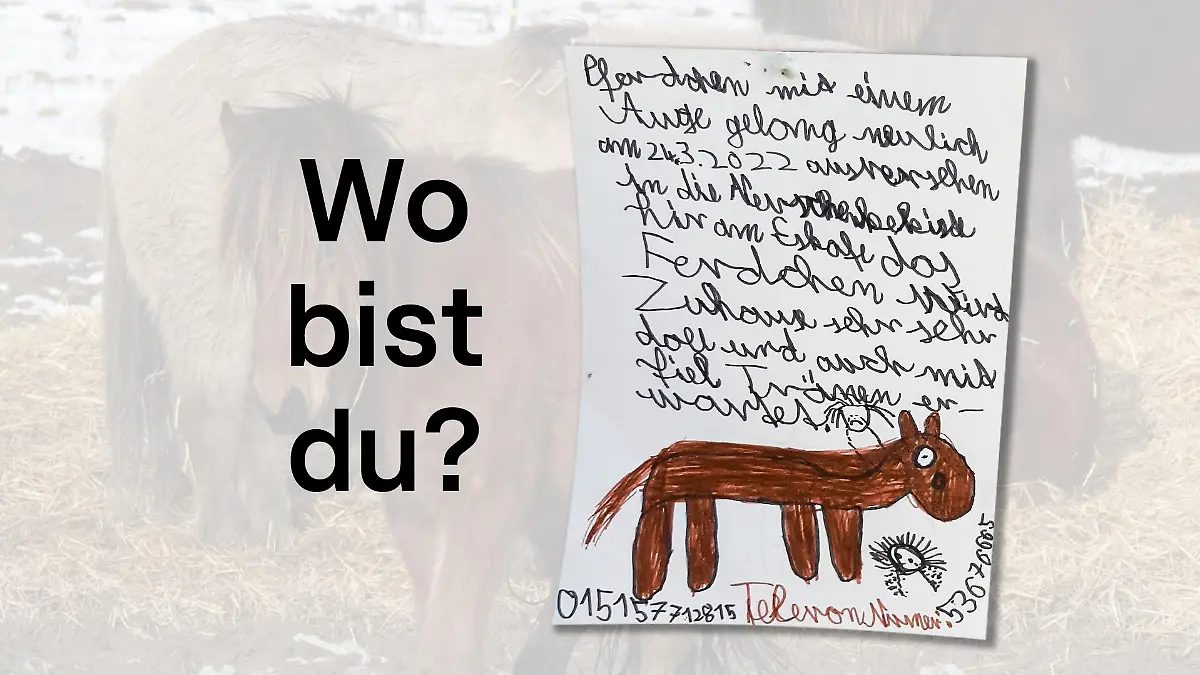 Wo
bist
du?
Pferdchen mit einem
Auge gelang neulich
am 24.3.2022 ausversehen
in die
hir am Eskaft das
Ferdchen wird
Zuhause sehr sehr
doll und auch mit
fiel Tränen er-
wartet.
015157712815 Televon Nummer:
53670005